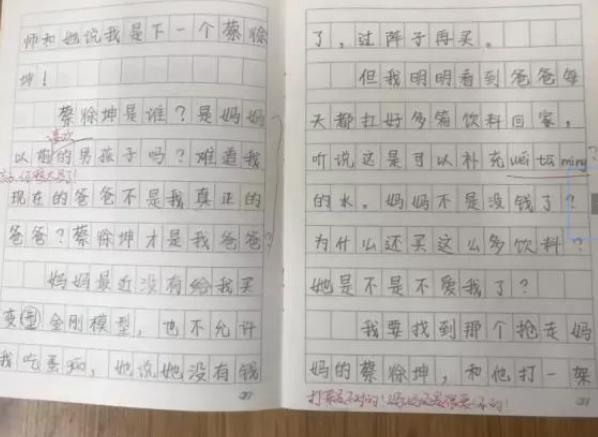 师和她说我是下一个蔡徐
坤！
蔡徐坤是谁？是妈妈
喜欢
以前的男孩子吗？难道我
现在的爸爸不是我真正的
爸爸？蔡徐坤才是我爸爸？
妈妈最近没有给我买
变型金刚模型，也不允许
我吃蛋糕，她说她没有钱
了，过阵子再买。
但我明明看到爸爸每
天都扛好多箱饮料回家，
听说这是可以补充wéi tā mìng？
的水。妈妈不是没钱了？
为什么还买这么多饮料？
她是不是不爱我了？
我要找到那个抢走妈
妈的蔡徐坤，和他打一架
打架是不对的！妈妈还是很爱你的！